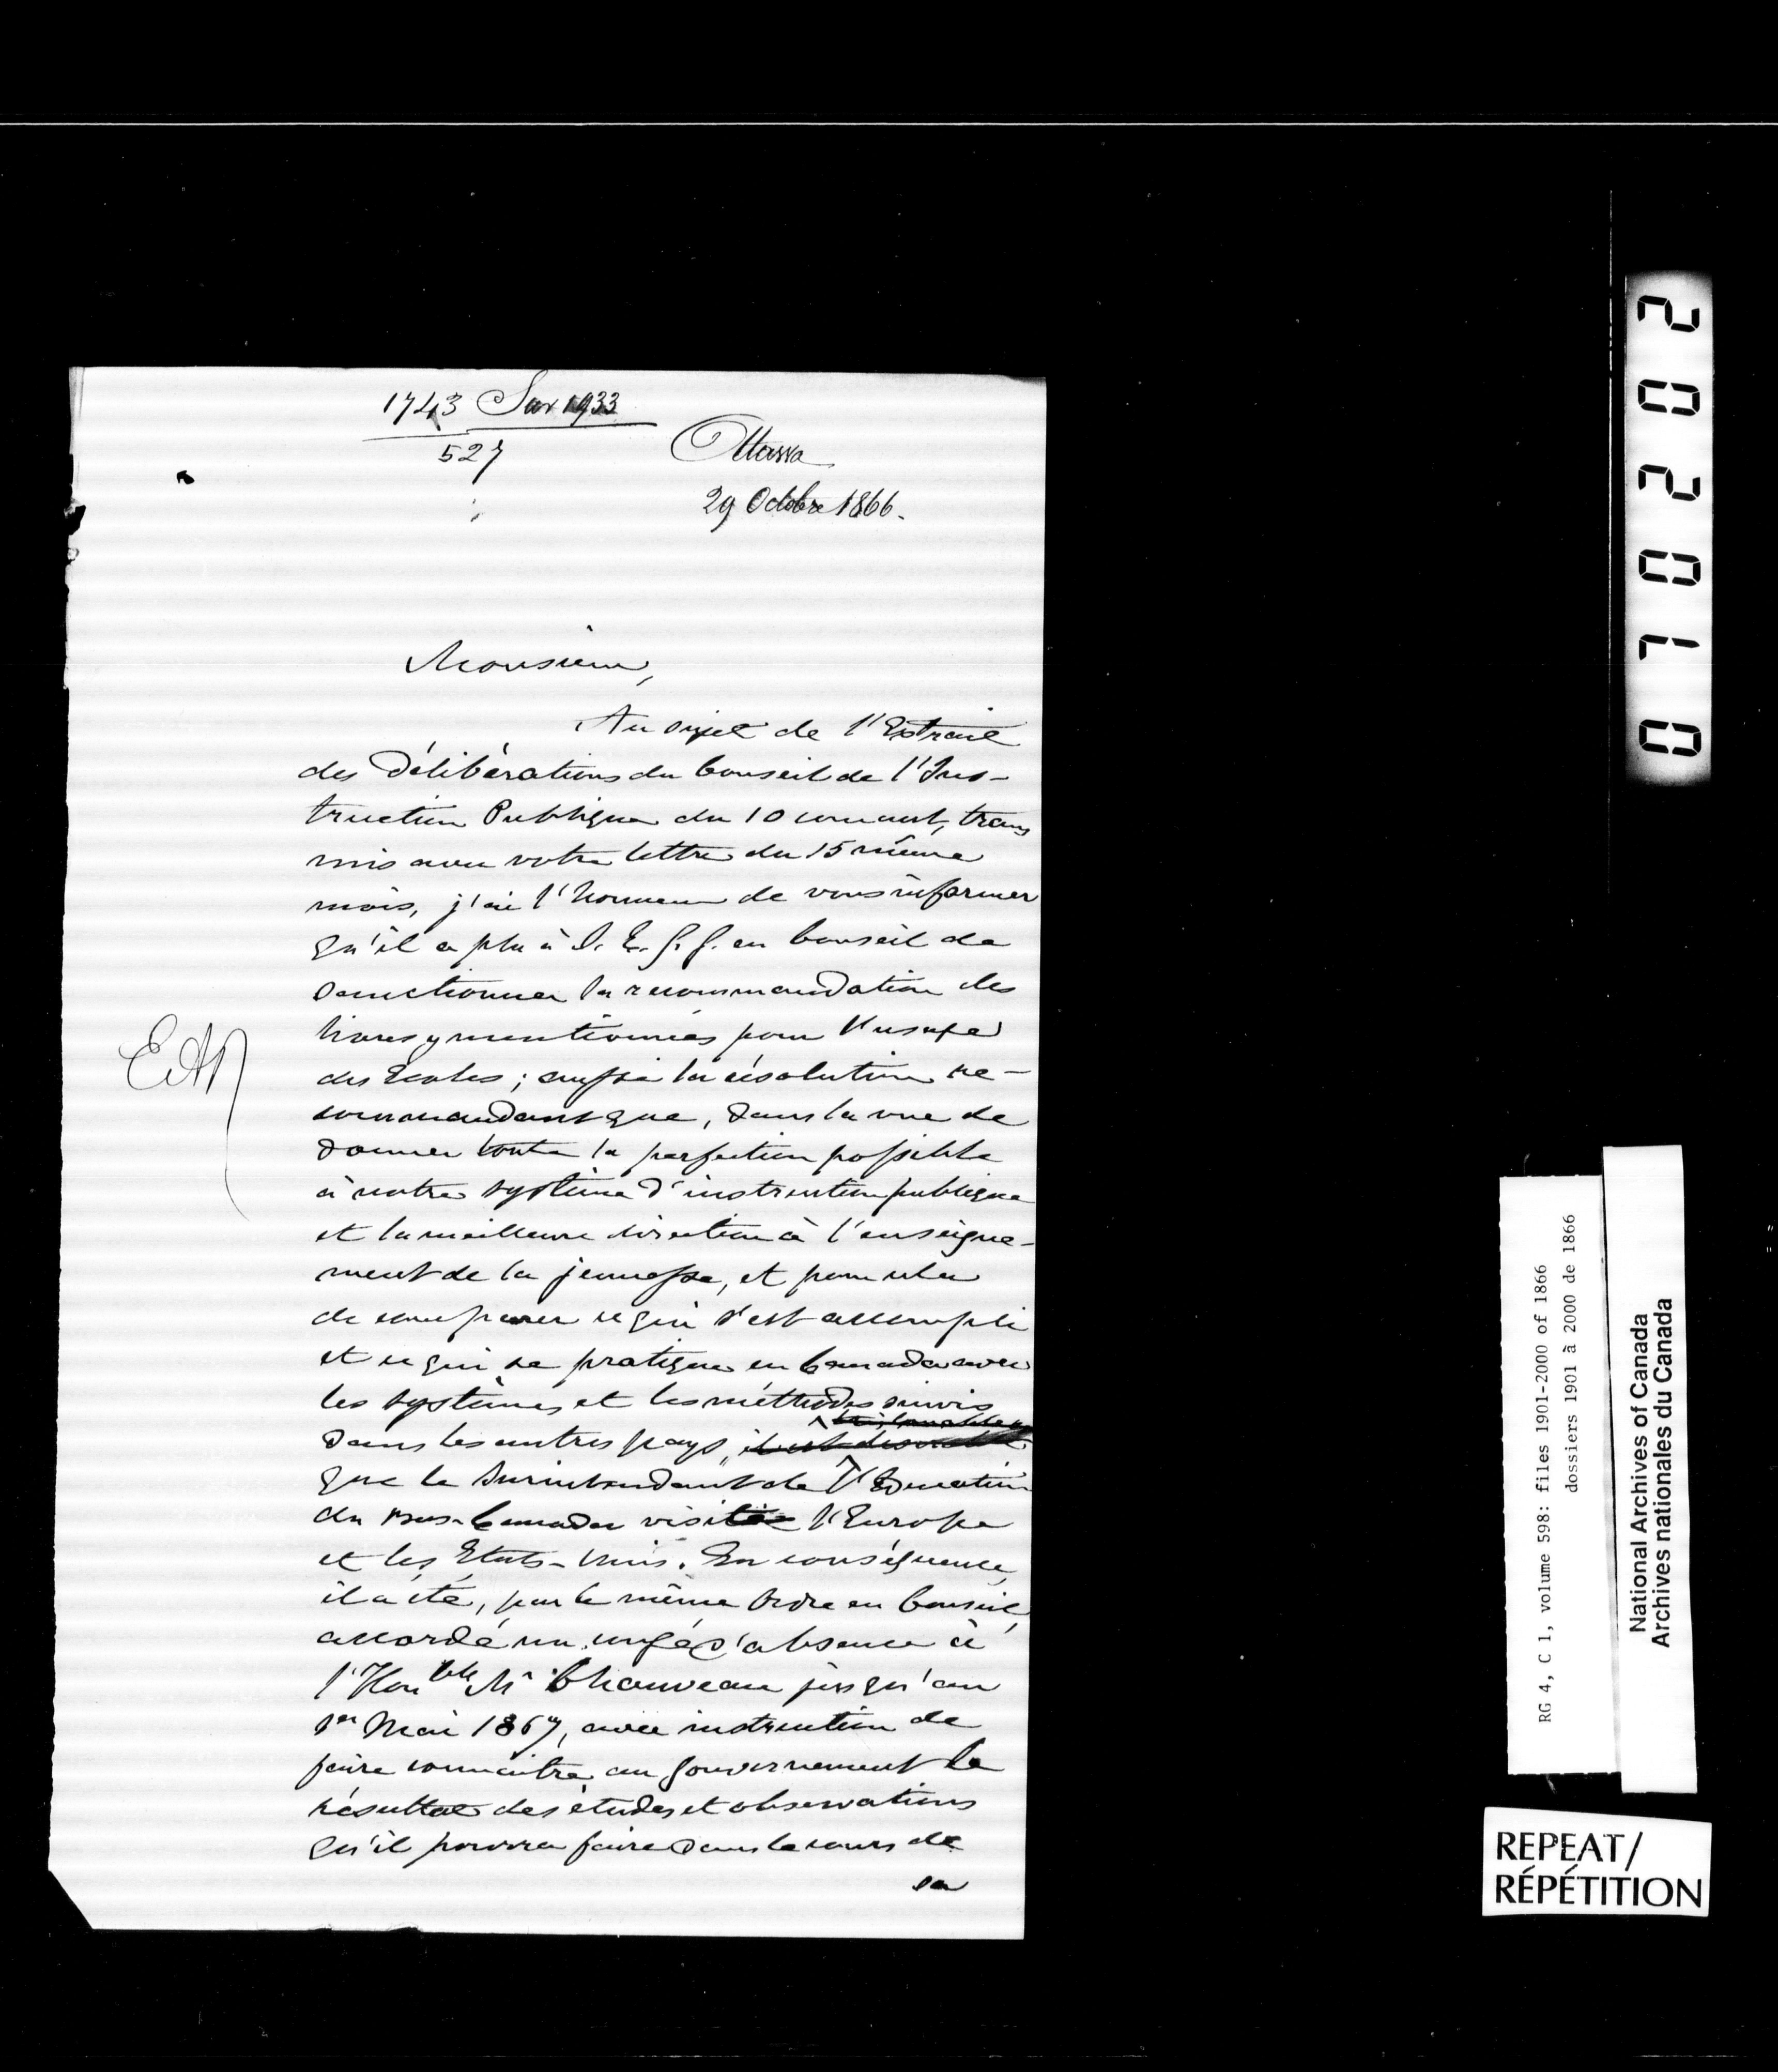 1743 Sur 1933
527
Ottawa
29 Octobre 1866.
Monsieur,
Au sujet de l'Extrait
des Délibérations du Conseil de l'Ins-
truction Publique du 10 courant, trans
mis avec votre lettre du 15 même
mois, j'ai l'honneur de vous informer
qu'il a plu à S. E. G. G. en Conseil de
sanctionner la recommandation des
livres y mentionnés pour l'usage
des Ecoles; aussi la résolution re-
commandant que, dans la vue de
donner toute la perfection possible
à notre système d'instruction publique
et la meilleure direction à l'enseigne-
ment de la jeunesse, et pour cela
de comparer ce qui s'est accompli
et ce qui se pratique en Canada avec
les systèmes et les méthodes suivis
dans les autres pays, il est désirable
que le Surintendant de l'Education
du Bas-Canada visite l'Europe
et les Etats-Unis. En conséquence,
il a été, par le même Ordre en Conseil,
accordé un congé d'absence à
l'Honble Mr Chauveau jusqu'au
1er Mai 1867, avec instruction de
faire connaître au gouvernement le
résultat des études et observations
qu'il pourra faire dans le cours de
sa
020202
RG 4, C 1, volume 598: files 1901-2000 of 1866
dossiers 1901 à 2000 de 1866
National Archives of Canada
Archives nationales du Canada
REPEAT/
RÉPÉTITION